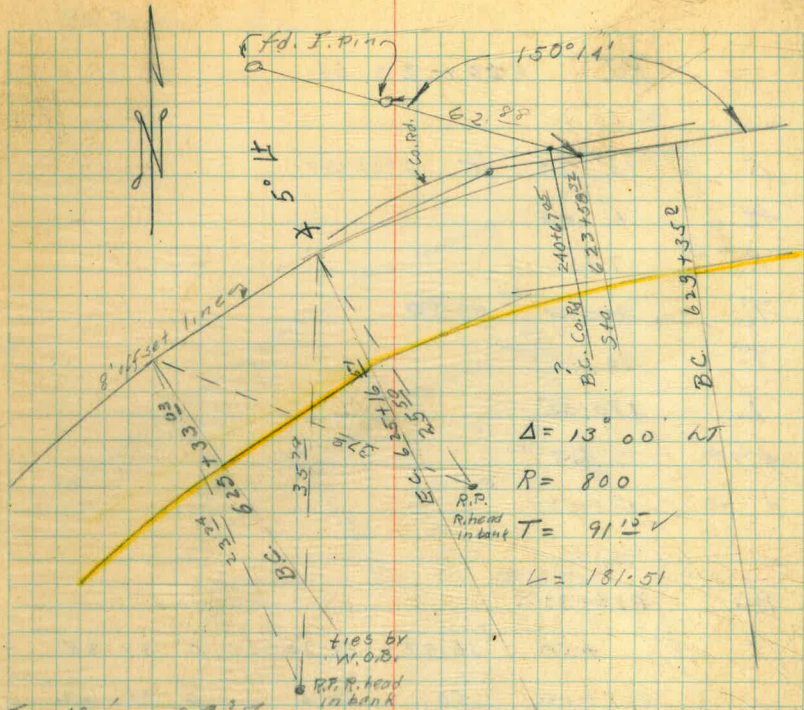 fd. I. pin
150°14'
62.88
Co. Rd.
5° Lt
8' offset line
240+67 05
B.C. Co. Rd
?
623+58 32
Sta
B.C. 629+35 2
625+33 03
23 24
B.C.
35 29
E.C. 625+16 51
25 50
R.P.
R. head
in bank
Δ = 13° 00' LT
R = 800
T = 91 15 ✓
L = 181.51
ties by
W.O.B.
R.P. R. head
in bank